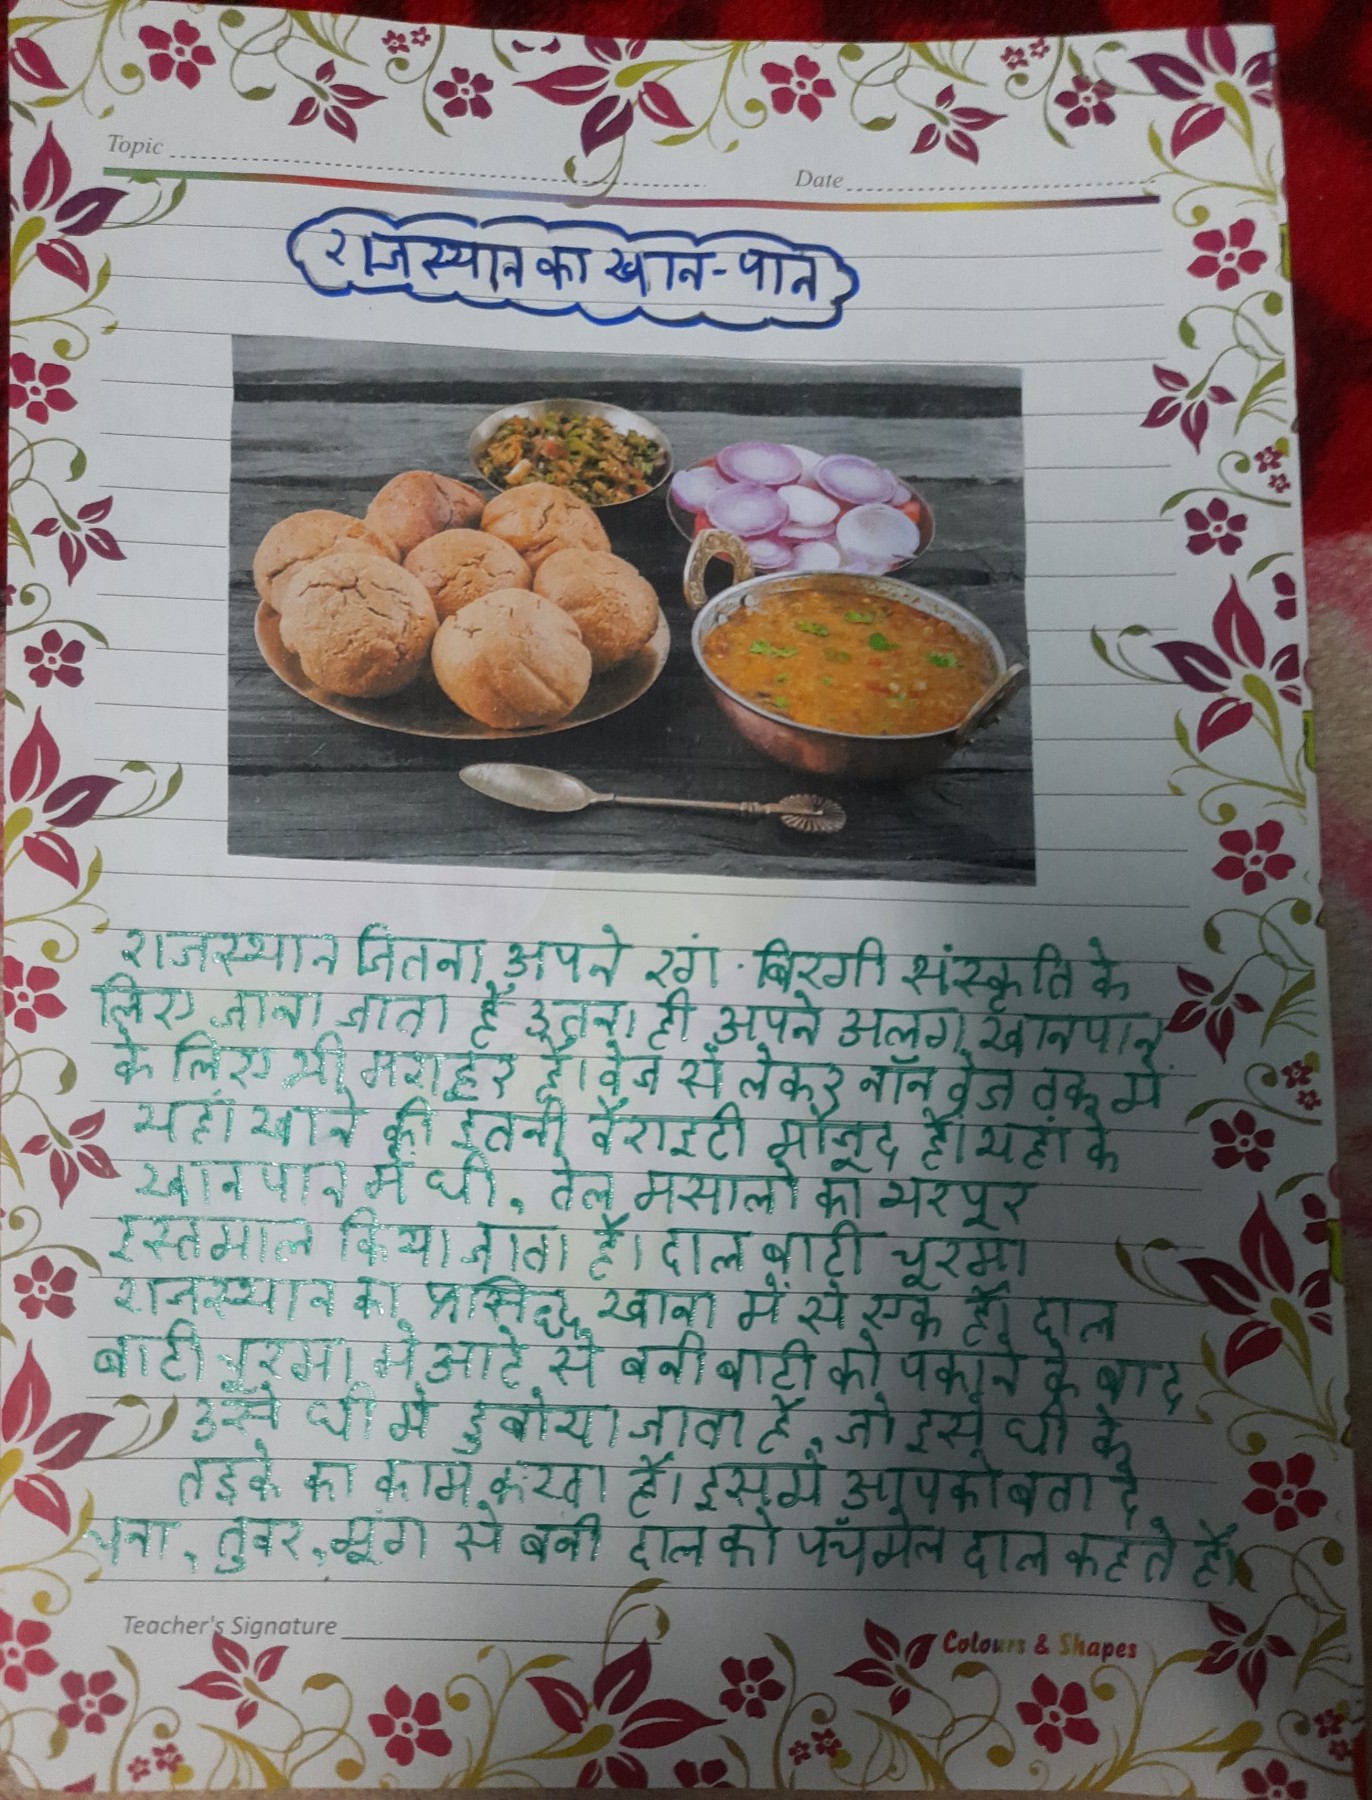 Topic
Date
राजस्थान का खान-पान
राजस्थान जितना अपने रंग बिरगी संस्कृति के
लिए जाना जाता है इतना ही अपने अलग खानपान
के लिए भी मशहूर है। वेज से लेकर नॉन वेज तक में
यहां खाने की इतनी वैराइटी मौजूद है। यहां के
खानपान में घी, तेल मसालो का भरपूर
इस्तमाल किया जाता है। दाल बाटी चूरमा
राजस्थान का प्रसिद्ध खाना में से एक है। दाल
बाटी चूरमा मे आटे से बनी बाटी को पकाने के बाद
उसे घी में डुबोया जाता है, जो इसे घी के
तड़के का काम करता है। इसमें आपको बता दे
चना, तुवर, मूंग से बनी दाल को पचँमेल दाल कहते है।
Teacher's Signature
Colours & Shapes